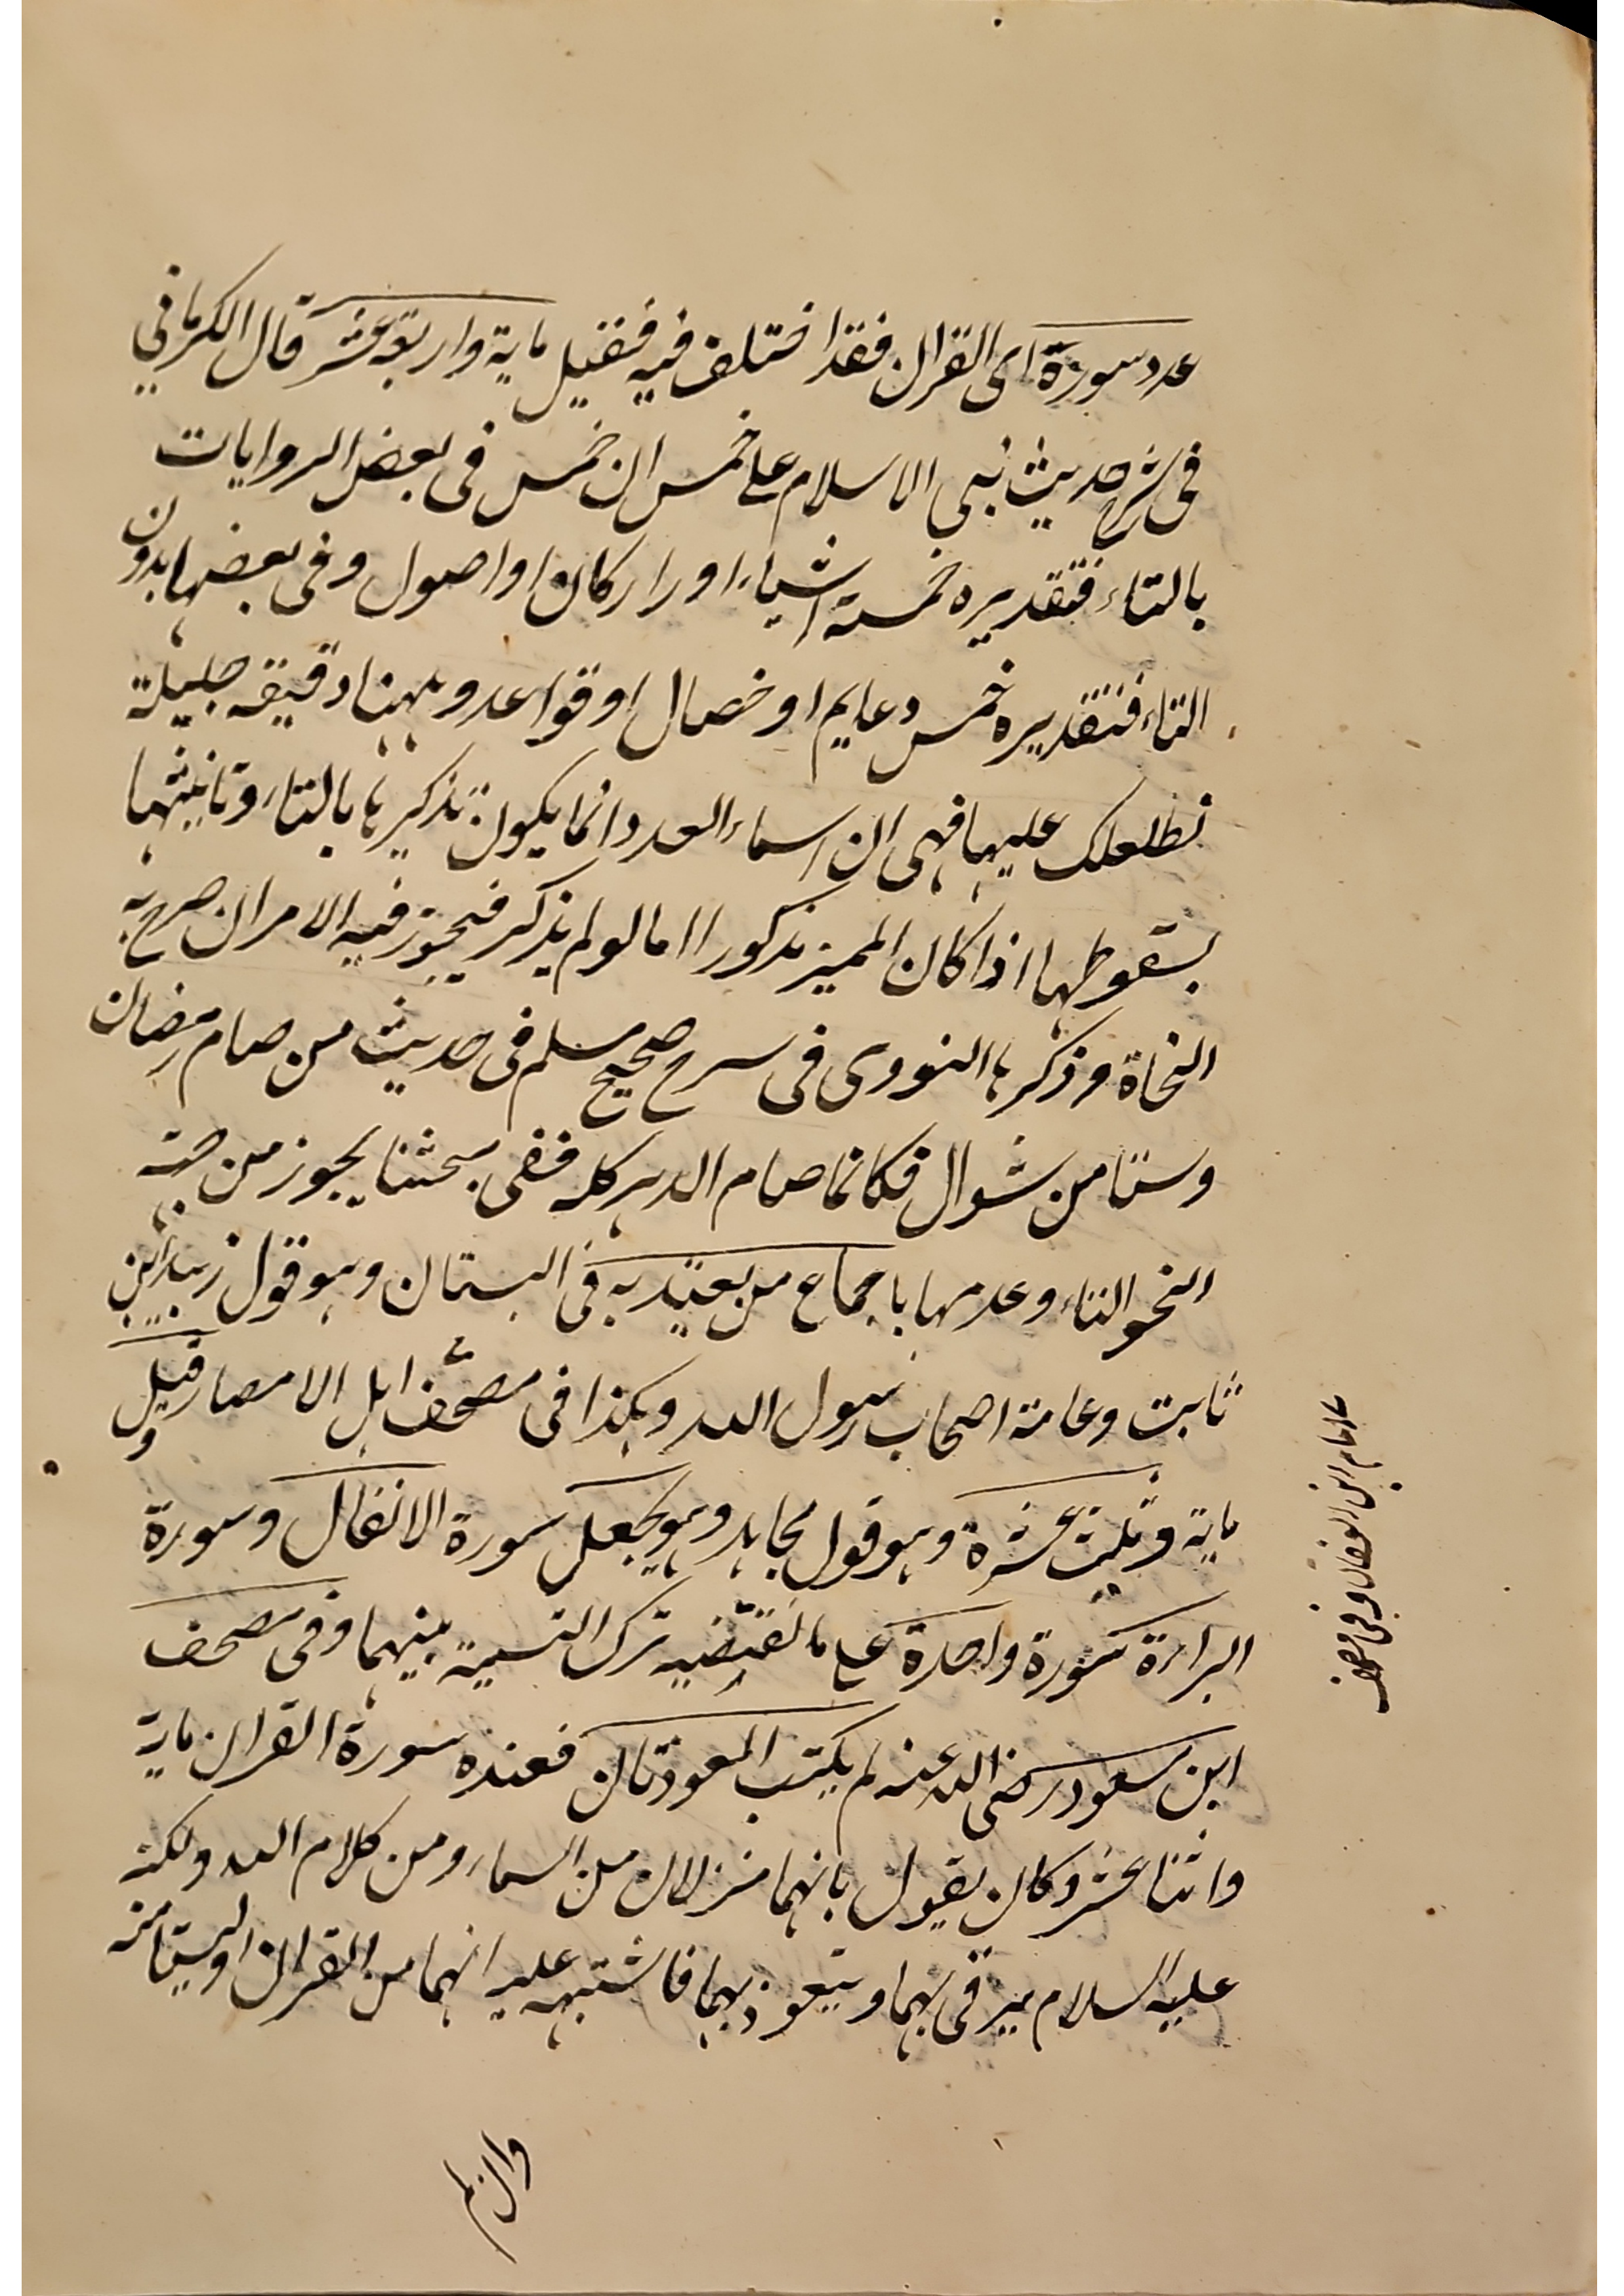 عدد سورة ای القران فقد اختلف فیه فقیل مایة واربعة عشر قال الکرمانی
فی شرح حدیث بنی الاسلام علی خمس ان خمس فی بعض الروایات
بالتاء فتقدیره خمسة اشیاء او ارکان او اصول وفی بعضها بدون
التاء فتقدیره خمس دعایم او خصال او قواعد وههنا دقیقة جلیلة
نطلعک علیها فهی ان اسماء العدد انما یکون تذکیرها بالتاء وتانیثها
بسقوطها اذا کان الممیز مذکورا اما لو لم یذکر فیجوز فیه الامران صرح به
النحاة وذکرها النووی فی سرح صحیح مسلم فی حدیث من صام رمضان
وستا من شوال فکانما صام الدهر کله ففی مبحثنا یجوز من جهة
النحو التاء وعدمها باجماع من یعتد به فی البستان وهو قول زید ابن
ثابت وعامة اصحاب رسول الله وهکذا فی مصحف اهل الامصار وقیل
مایة وثلث عشرة وهو قول مجاهد وهو یجعل سورة الانفال وسورة
البراءة سورة واحدة علی ما تقتضیه ترک التسمیة بینهما وفی مصحف
ابن مسعود رضی الله عنه لم یکتب المعوذتان فعنده سورة القران مایة
واثنا عشر وکان یقول بانهما منزلان من السماء ومن کلام الله ولکنه
علیه السلام یرقی بهما ویتعوذ بهما فاشتبه علیه انهما من القران او لیستا منه
وان لم
امام ابن العفان وفی مصحف